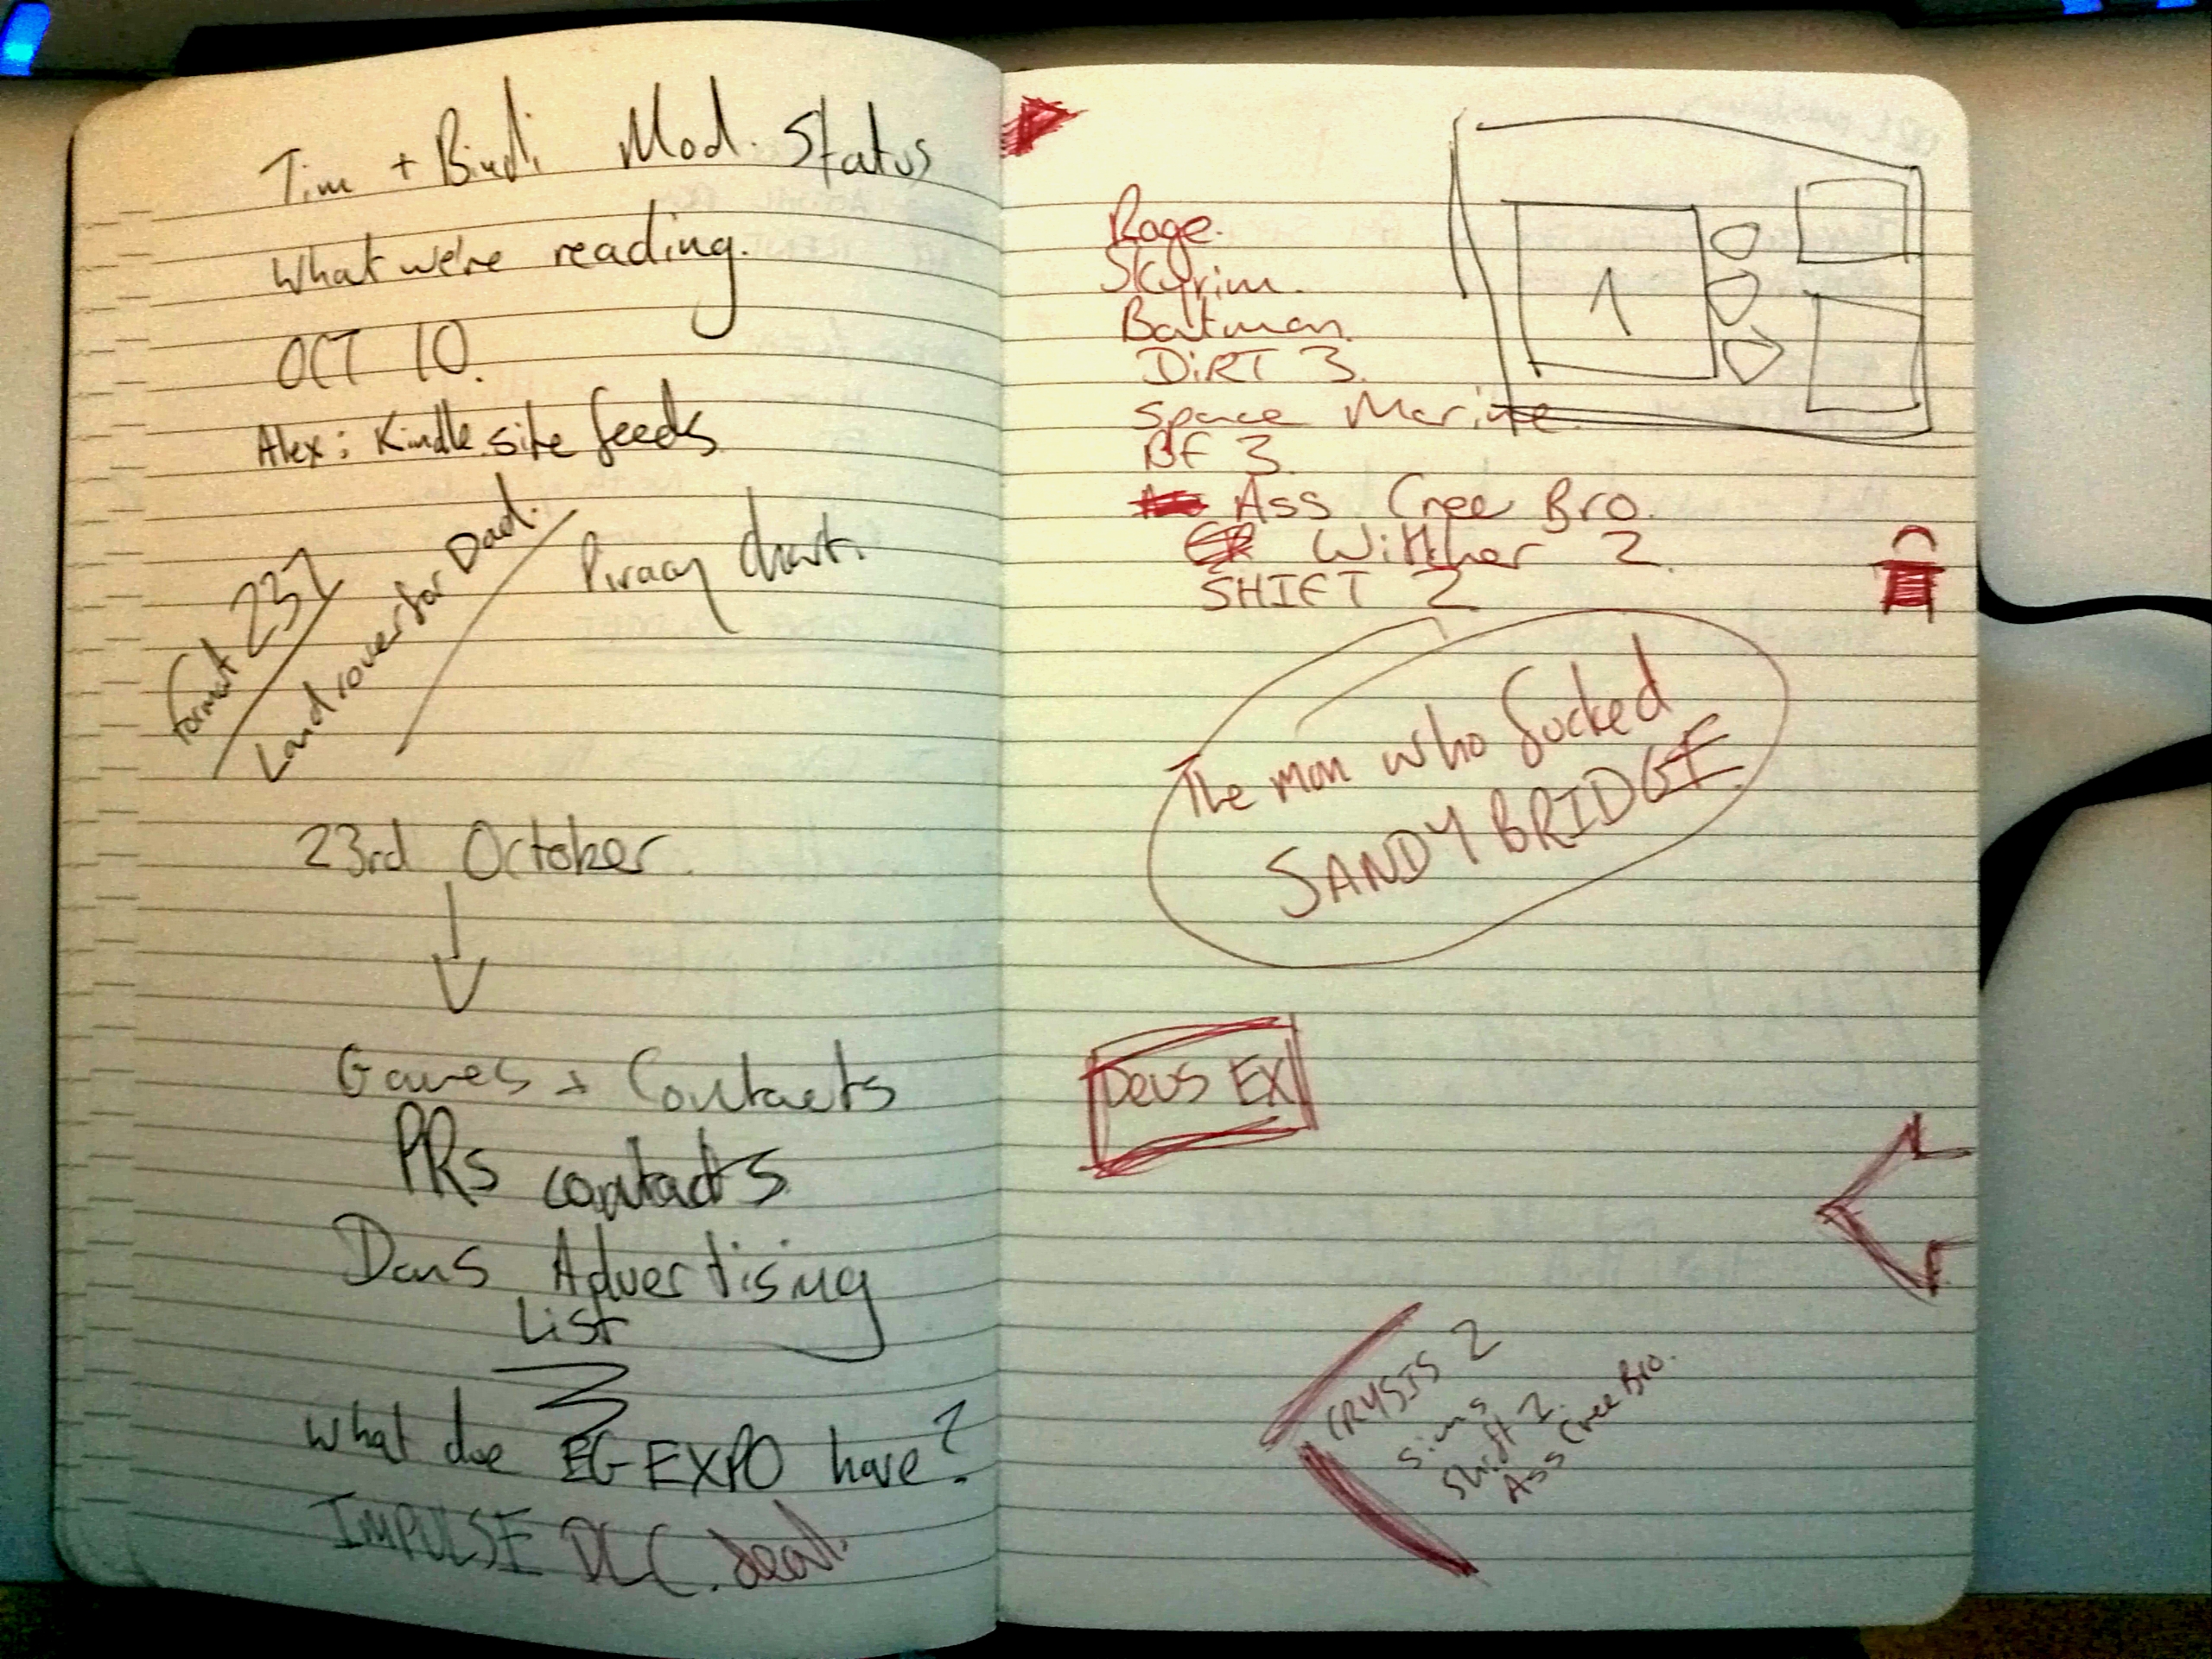 Tim + Bindi Mod. Status
What we're reading.
OCT 10.
Alex: Kindle site feeds
format 237
Land rover for Dad.
Piracy chart.
23rd October.
Games + Contacts
PRs contacts
Dans Advertising
List
What doe EG EXPO have?
IMPULSE DLC. deal.
Rage.
Skyrim.
Batman.
DiRT 3.
Space Marine.
BF 3.
Ass Cree Bro.
Witcher 2.
SHIFT 2
1
The man who fucked
SANDY BRIDGE
Deus EX
CRYSIS 2
Sims
Shift 2.
Ass Cree Bro.